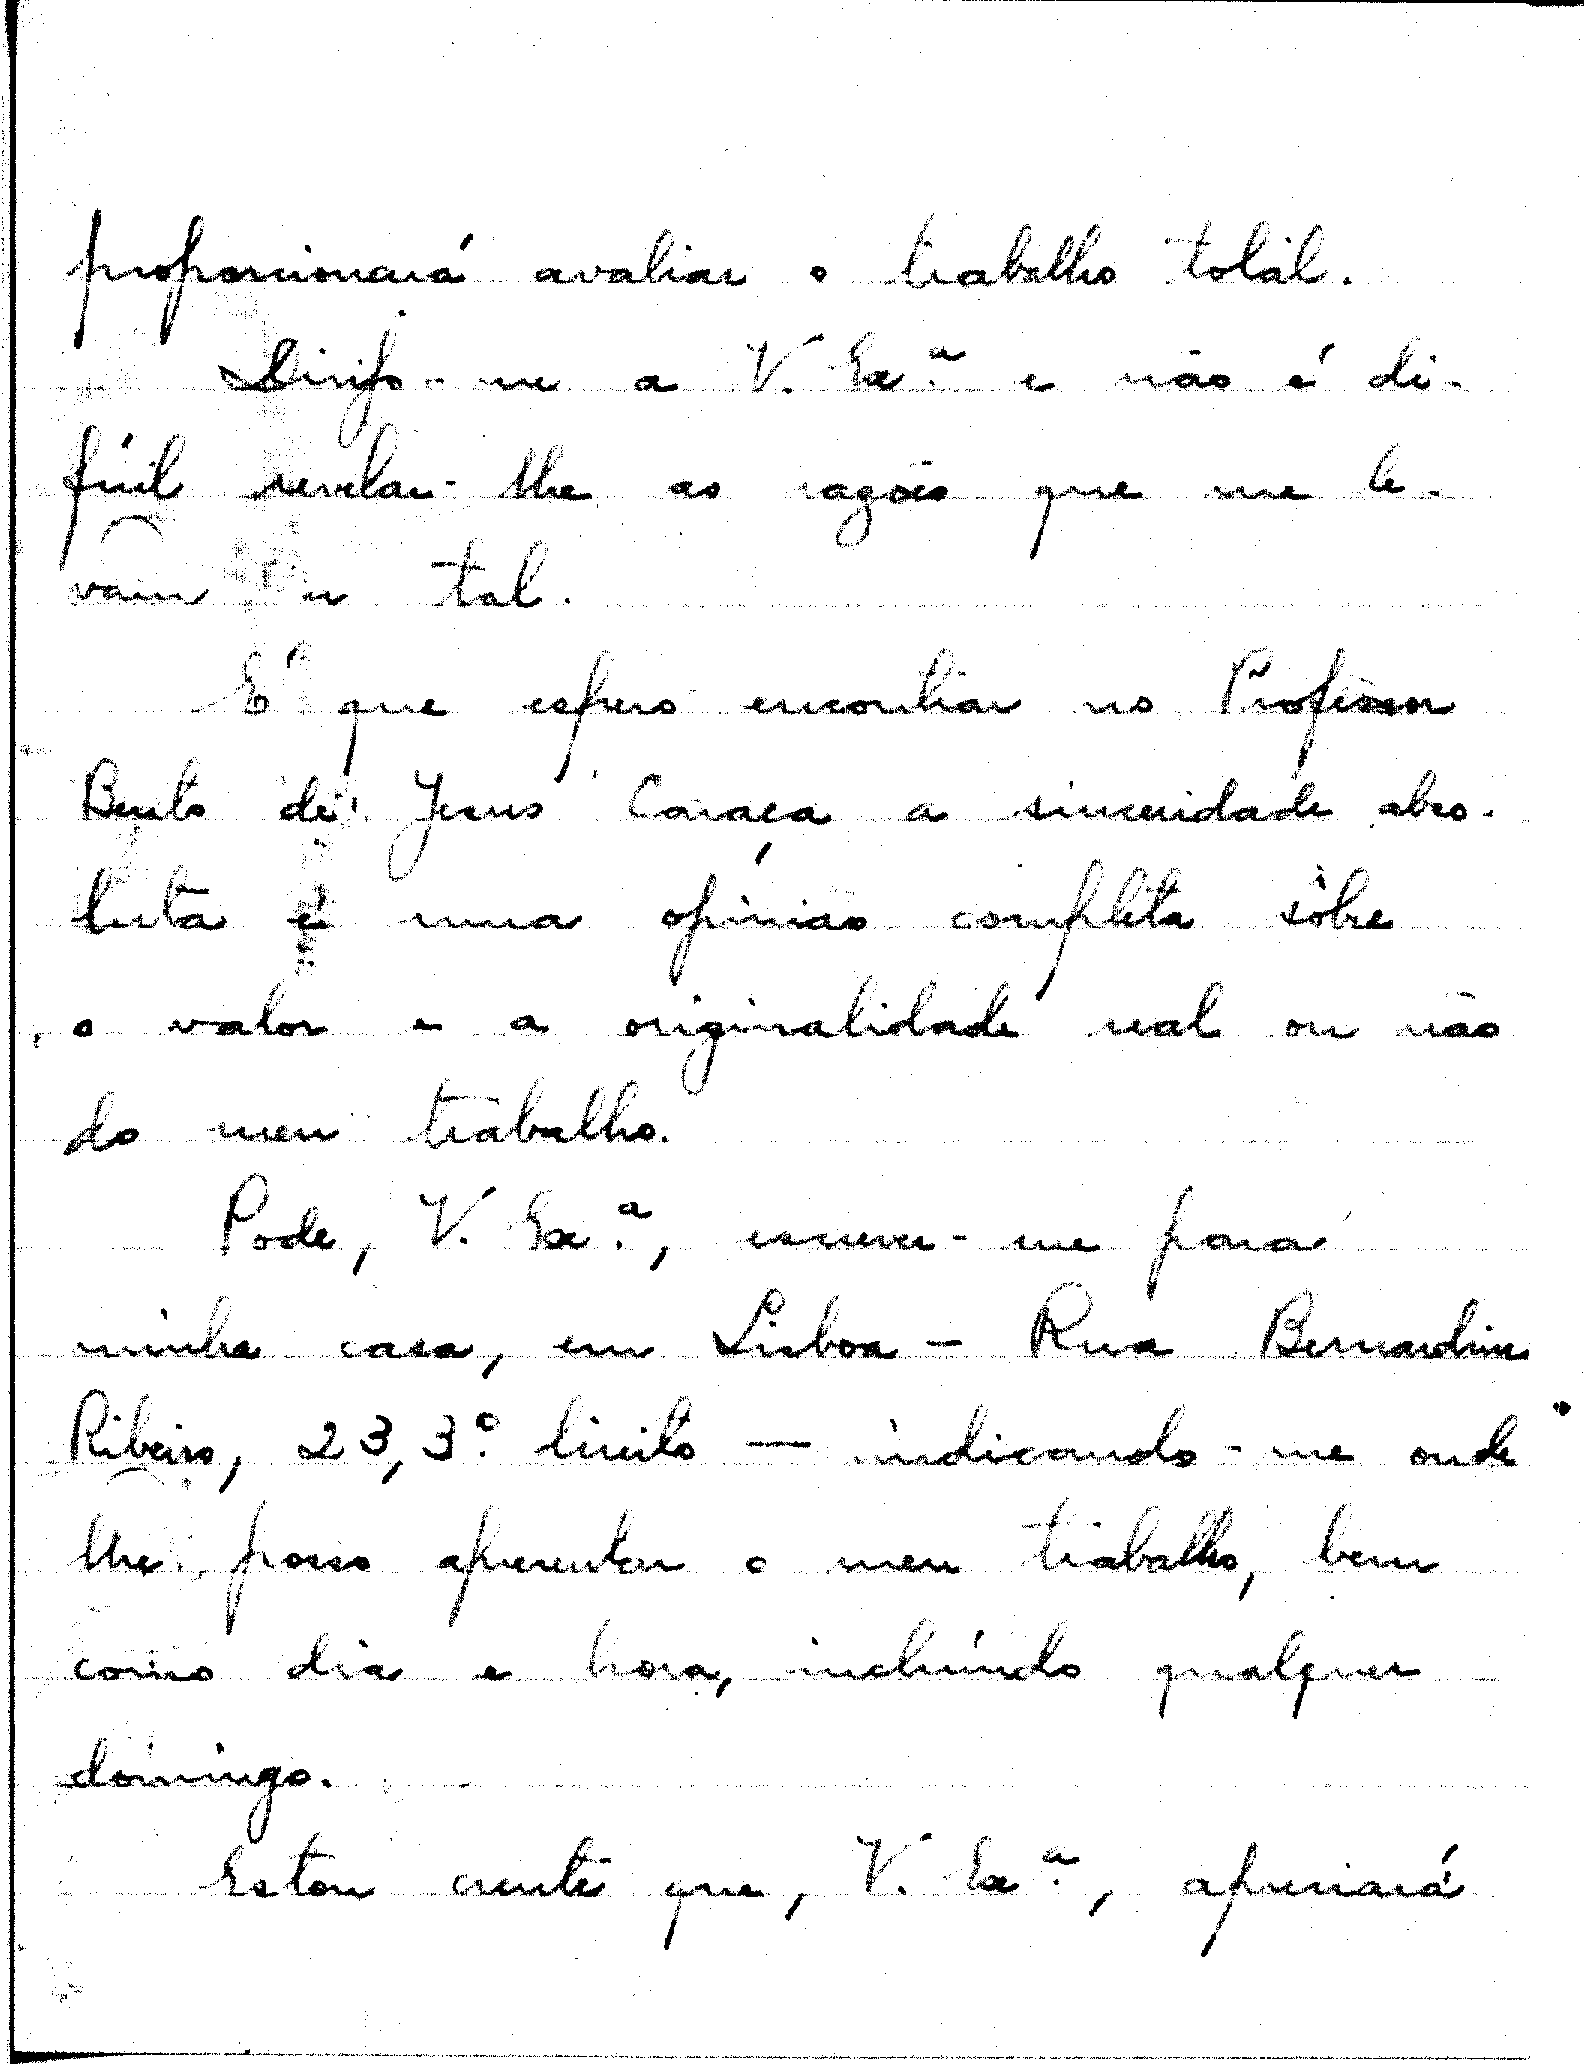 proporcionará avaliar o trabalho total.
Dirijo-me a V. Ex.ª e não é di-
fícil revelar-lhe as razões que me le-
vam a tal.
É que espero encontrar no Professor
Bento de Jesus Caraça a sinceridade abso-
luta e uma opinião completa sôbre
o valor e a originalidade real ou não
do meu trabalho.
Pode, V. Ex.ª, escrever-me para
minha casa, em Lisboa - Rua Bernardim
Ribeiro, 23, 3.º direito — indicando-me onde
lhe posso apresentar o meu trabalho, bem
como dia e hora, incluíndo qualquer
domingo.
Estou crente que, V. Ex.ª, apreciará